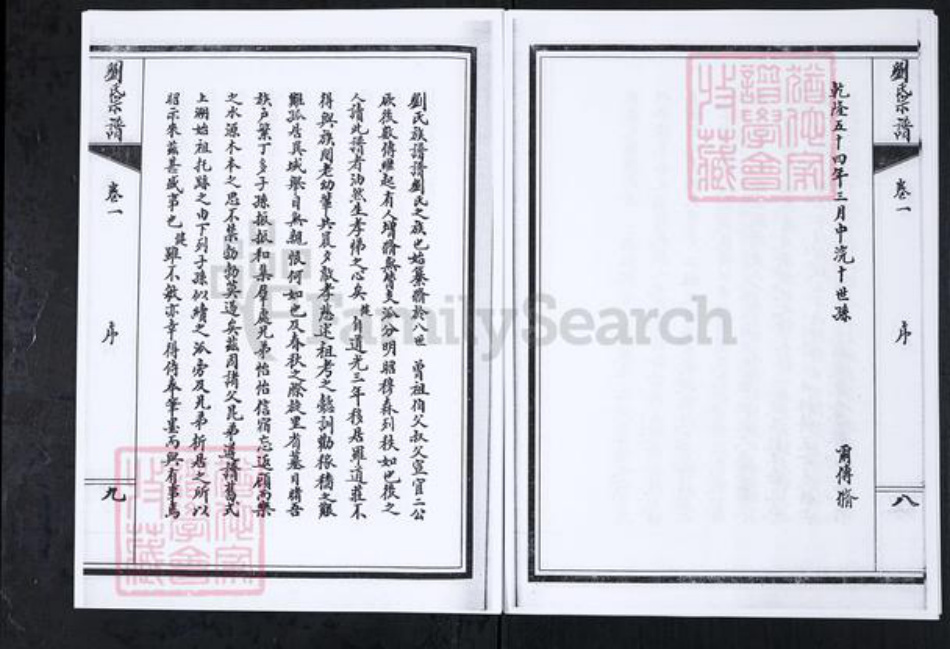 劉氏宗譜
卷一
序
八
乾隆五十四年三月中浣十世孫
爾傳
劉氏宗譜
卷一
序
九
劉氏族譜譜劉氏之族也始纂脩於八世 曾祖伯父叔父宣官二公
厥後數傳繼起有人增脩無替支派分明昭穆森列秩如也後之
人讀此譜者油然生孝悌之心矣 自道光三年移居雙道莊不
得與族間老幼輩共晨夕敘孝慈述祖考之懿訓勸稼穡之艱
難孤居異域舉目無親恨何如也及春秋之際旋里省墓目睹吾
族戶業丁多子孫振振和集群處兄弟怡怡信宿忘返顧而樂
之水源木本之思不禁勃勃莫遏矣茲因諸父昆弟遵譜舊式
上溯始祖托跡之由下列子孫似續之派旁及兄弟析居之所以
昭示來茲甚盛事也 雖不敏亦幸得侍奉筆墨而與有事焉
FamilySearch
猶他家譜學會收藏
猶他家譜學會收藏